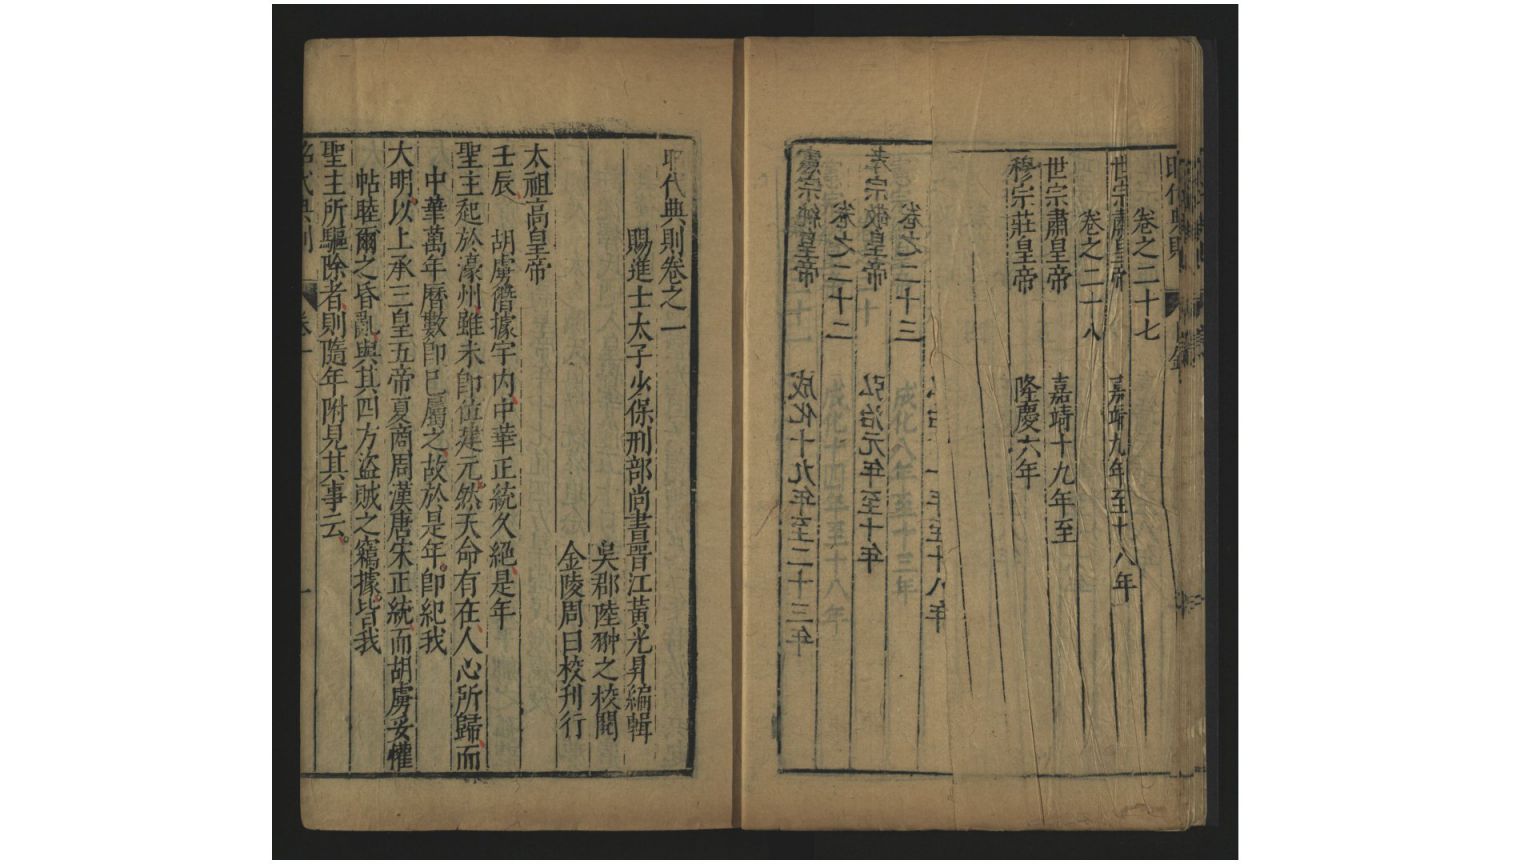 昭代典則
卷之二十七
世宗肅皇帝 嘉靖九年至十八年
卷之二十八
世宗肅皇帝 嘉靖十九年至
穆宗莊皇帝 隆慶六年
年至十八年
卷之二十三
孝宗敬皇帝 弘治元年至十年
卷之二十二
憲宗純皇帝 成化十九年至二十三年
昭代典則卷之一
賜進士太子少保刑部尚書晉江黃光昇編輯
吳郡陸翀之校閱
金陵周曰校刊行
太祖高皇帝
壬辰 胡虜僭據宇內中華正統久絕是年
聖主起於濠州雖未即位建元然天命有在人心所歸而
中華萬年曆數即已屬之故於是年即紀我
大明以上承三皇五帝夏商周漢唐宋正統而胡虜妥懽
帖睦爾之昏亂與其四方盜賊之竊據皆我
聖主所驅除者則隨年附見其事云
昭代典則 卷一 一